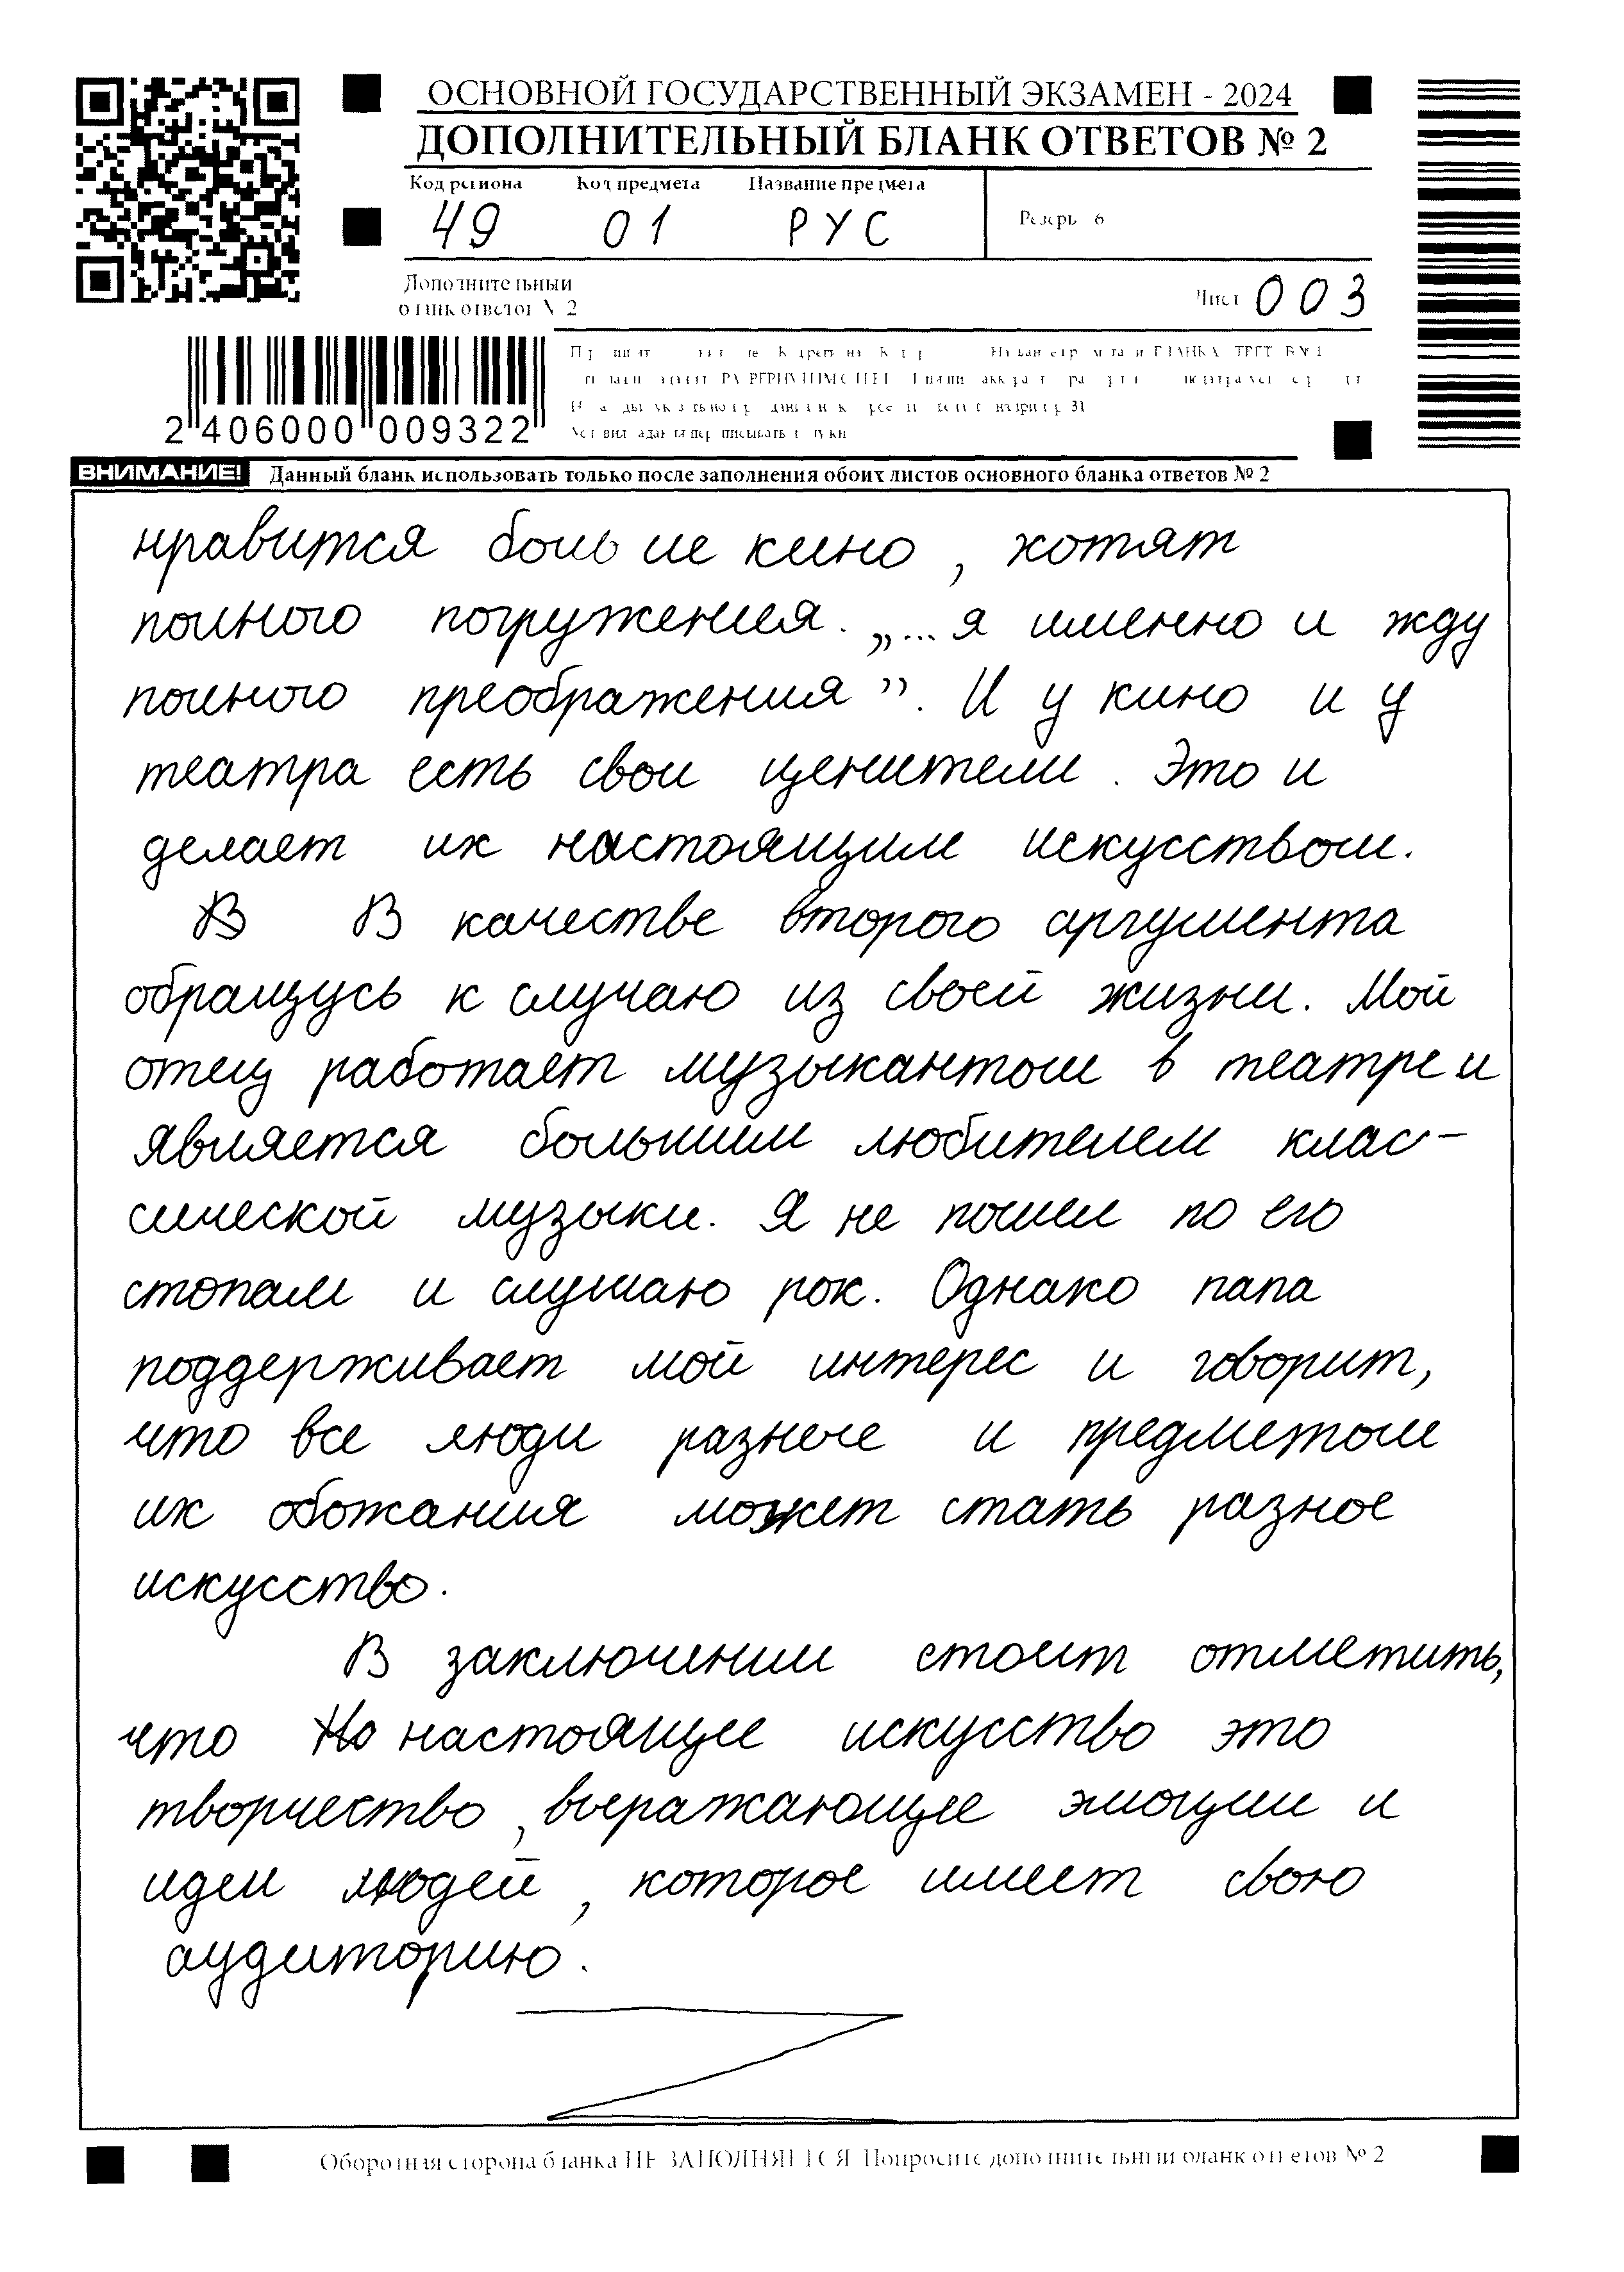 ОСНОВНОЙ ГОСУДАРСТВЕННЫЙ ЭКЗАМЕН - 2024
ДОПОЛНИТЕЛЬНЫЙ БЛАНК ОТВЕТОВ № 2
Код региона Код предмета Название предмета
49 01 РУС
Резерв - 6
Дополнительный
бланк ответов № 2
Лист 003
2406000009322
ВНИМАНИЕ! Данный бланк использовать только после заполнения обоих листов основного бланка ответов № 2
нравится больше кино, хотят
полного погружения. „...я именно и жду
полного преображения”. И у кино и у
театра есть свои ценители. Это и
делает их настоящим искусством.
В В качестве второго аргумента
обращусь к случаю из своей жизни. Мой
отец работает музыкантом в театре и
является большим любителем клас-
сической музыки. Я не пошел по его
стопам и слушаю рок. Однако папа
поддерживает мой интерес и говорит,
что все люди разные и предметом
их обожания может стать разное
искусство.
В заключении стоит отметить,
что настоящее искусство это
творчество, выражающее эмоции и
идеи людей, которое имеет свою
аудиторию.
Оборотная сторона бланка НЕ ЗАПОЛНЯЕТСЯ. Попросите дополнительный бланк ответов № 2